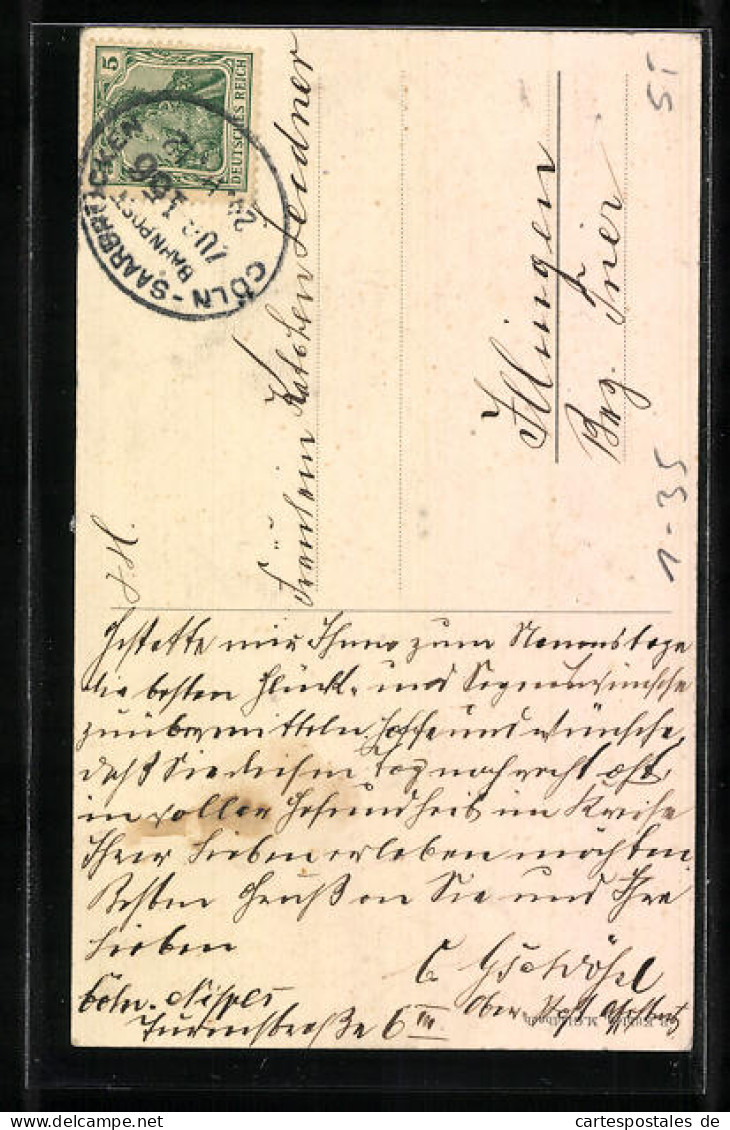 5
DEUTSCHES REICH
CÖLN - SAARBRÜCKEN
BAHNPOST
ZUG 156
Fräulein Katchen Leidner
Illingen
Bzg. Trier
SI
1-35
Gestatte mir Ihnen zum Namenstage
die besten Glück- und Segenswünsche
zu übermitteln, hoffe und wünsche,
daß Sie diesen Tag noch recht oft
in voller Gesundheit im Kreise
Ihrer Lieben erleben möchten.
Besten Gruß an Sie und Ihre
Lieben
C.
Ober
Cöln-Nippes
Turmstraße 6 III
cartespostales de